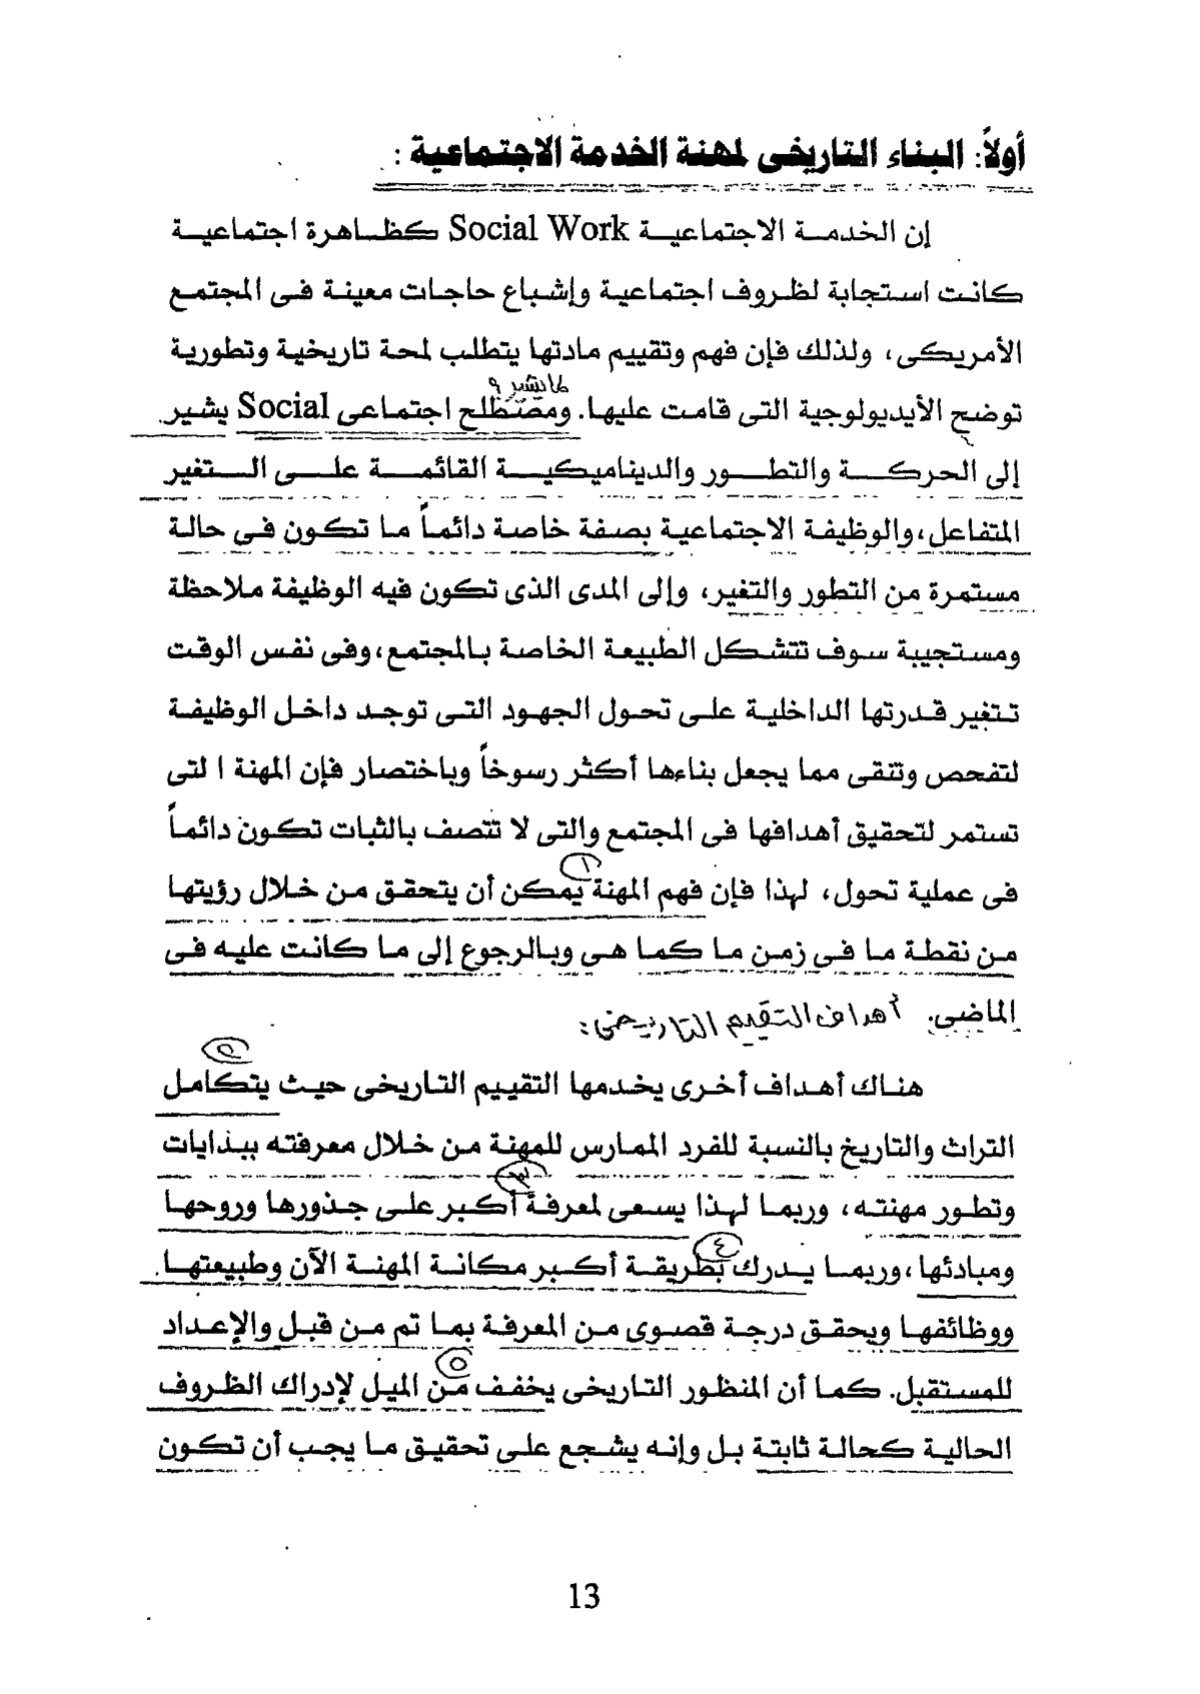 أولاً: البناء التاريخى لمهنة الخدمة الاجتماعية :
إن الخدمة الاجتماعية Social Work كظاهرة اجتماعية
كانت استجابة لظروف اجتماعية وإشباع حاجات معينة فى المجتمع
الأمريكى، ولذلك فإن فهم وتقييم مادتها يتطلب لمحة تاريخية وتطورية
توضح الأيديولوجية التى قامت عليها. ومصطلح اجتماعى Social يشير
إلى الحركة والتطور والديناميكية القائمة على التغير
المتفاعل، والوظيفة الاجتماعية بصفة خاصة دائماً ما تكون فى حالة
مستمرة من التطور والتغير، وإلى المدى الذى تكون فيه الوظيفة ملاحظة
ومستجيبة سوف تتشكل الطبيعة الخاصة بالمجتمع، وفى نفس الوقت
تتغير قدرتها الداخلية على تحول الجهود التى توجد داخل الوظيفة
لتفحص وتنقى مما يجعل بناءها أكثر رسوخاً وباختصار فإن المهنة ا لتى
تستمر لتحقيق أهدافها فى المجتمع والتى لا تتصف بالثبات تكون دائماً
١
فى عملية تحول، لهذا فإن فهم المهنة يمكن أن يتحقق من خلال رؤيتها
من نقطة ما فى زمن ما كما هى وبالرجوع إلى ما كانت عليه فى
الماضى. أهداف التقييم التاريخى:
هناك أهداف أخرى يخدمها التقييم التاريخى حيث يتكامل
التراث والتاريخ بالنسبة للفرد الممارس للمهنة من خلال معرفته ببدايات
٣
وتطور مهنته، وربما لهذا يسعى لمعرفة أكبر على جذورها وروحها
٤
ومبادئها، وربما يدرك بطريقة أكبر مكانة المهنة الآن وطبيعتها
ووظائفها ويحقق درجة قصوى من المعرفة بما تم من قبل والإعداد
٥
للمستقبل. كما أن المنظور التاريخى يخفف من الميل لإدراك الظروف
الحالية كحالة ثابتة بل وإنه يشجع على تحقيق ما يجب أن تكون
13